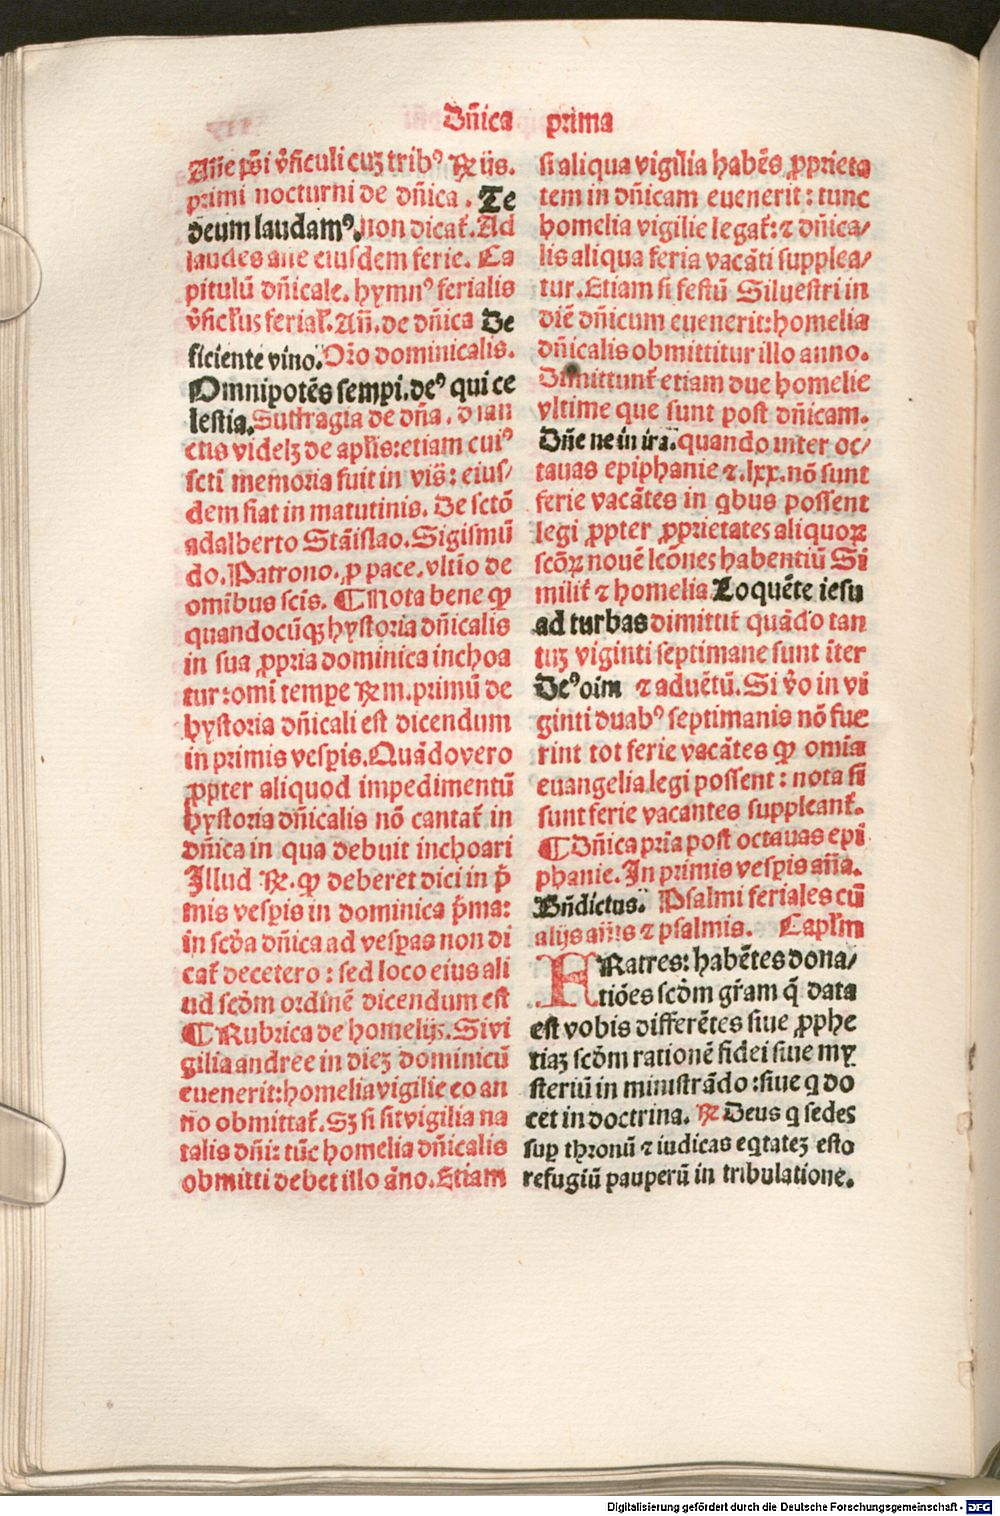 Dñica prima
Añe ps̄i v̄ſiculi cuʒ tribꝰ ꝶ iſs.
primi nocturni de dñica. Te
deum laudamꝰ. non dicat̄. Ad
laudes añe eiuſdem ferie. Ca
pitulū dñicale. hymnꝰ ferialis
v̄ſiculus ferial̄. Añ. de dñica De
ficiente vino. Oŕo dominicalis.
Omnipotēs ſempi. deꝰ qui ce
leſtia. Suffragia de dña. d ſan
ctis videlʒ de apl̄is: etiam cuiꝰ
ſcti memoria fuit in viḡ: eiuſ⸗
dem fiat in matutinis. De ſctō
adalberto Stāiſlao. Sigiſmū
do. Patrono. ꝑ pace. vltīo de
omībus ſcīs. ¶ Nota bene ꝙ
quandocūqʒ hyſtoria dñicalis
in ſua ꝓpria dominica inchoa
tur: omī tempe ꝶm. primū de
hyſtoria dñicali eſt dicendum
in primis veſꝑis. Quādo vero
ꝓpter aliquod impedimentū
hyſtoria dñicalis nō cantat̄ in
dñica in qua debuit inchoari
Illud ꝶ. ꝙ deberet dici in p̄
mis veſꝑis in dominica p̄ma:
in ſcd̄a dñica ad veſꝑas non di
cat̄ decetero: ſed loco eius ali
ud ſcd̄m ordinē dicendum eſt
¶ Rubrica de homelijs. Si vi
gilia andree in dieʒ dominicū
euenerit: homelia vigilie eo an
no obmittat̄. Sʒ ſi ſit vigilia na
talis dñi: tūc homelia dñicalis
obmitti debet illo āno. Etiam
ſi aliqua vigilia habēs ꝓprieta
tem in dñicam euenerit: tunc
homelia vigilie legat̄: ⁊ dñica⸗
lis aliqua feria vacāti ſupplea⸗
tur. Etiam ſi feſtū Silueſtri in
diē dñicum euenerit: homelia
dñicalis obmittitur illo anno.
Dimittunt̄ etiam due homelie
vltime que ſunt poſt dñicam.
Dñe ne in ira. quando inter oc⸗
tauas epiphanie ⁊. lxx. nō ſunt
ferie vacātes in qbus poſſent
legi ꝓpter ꝓprietates aliquoꝝ
ſcōꝝ nouē lcōnes habentiū Si
milit̄ ⁊ homelia. Loquēte ieſu
ad turbas dimitut̄ quādo tan
tuʒ viginti ſeptimane ſunt īter
Deꝰ oīm ⁊ aduētū. Si v̄o in vi
ginti duabꝰ ſeptimanis nō fue
rint tot ferie vacātes ꝙ omīa
euangelia legi poſſent: nota ſi
ſunt ferie vacantes ſuppleant̄.
¶ Dñica pr̄ia poſt octauas epi
phanie. In primis veſꝑis añа.
Bn̄dictus. Pſalmi feriales cū
alijs añis ⁊ pſalmis. Capl̄m
FRatres: habētes dona⸗
tiōes ſcd̄m gr̄am q̄ data
eſt vobis differētes ſiue ꝓphe
tiaʒ ſcd̄m rationē fidei ſiue my
ſteriū in miniſtrādo: ſiue q do
cet in doctrina. ꝶ Deus q ſedes
ſuꝑ thronū ⁊ iudicas eqtateʒ eſto
refugiū pauperū in tribulatione.
Digitalisierung gefördert durch die Deutsche Forschungsgemeinschaft - DFG